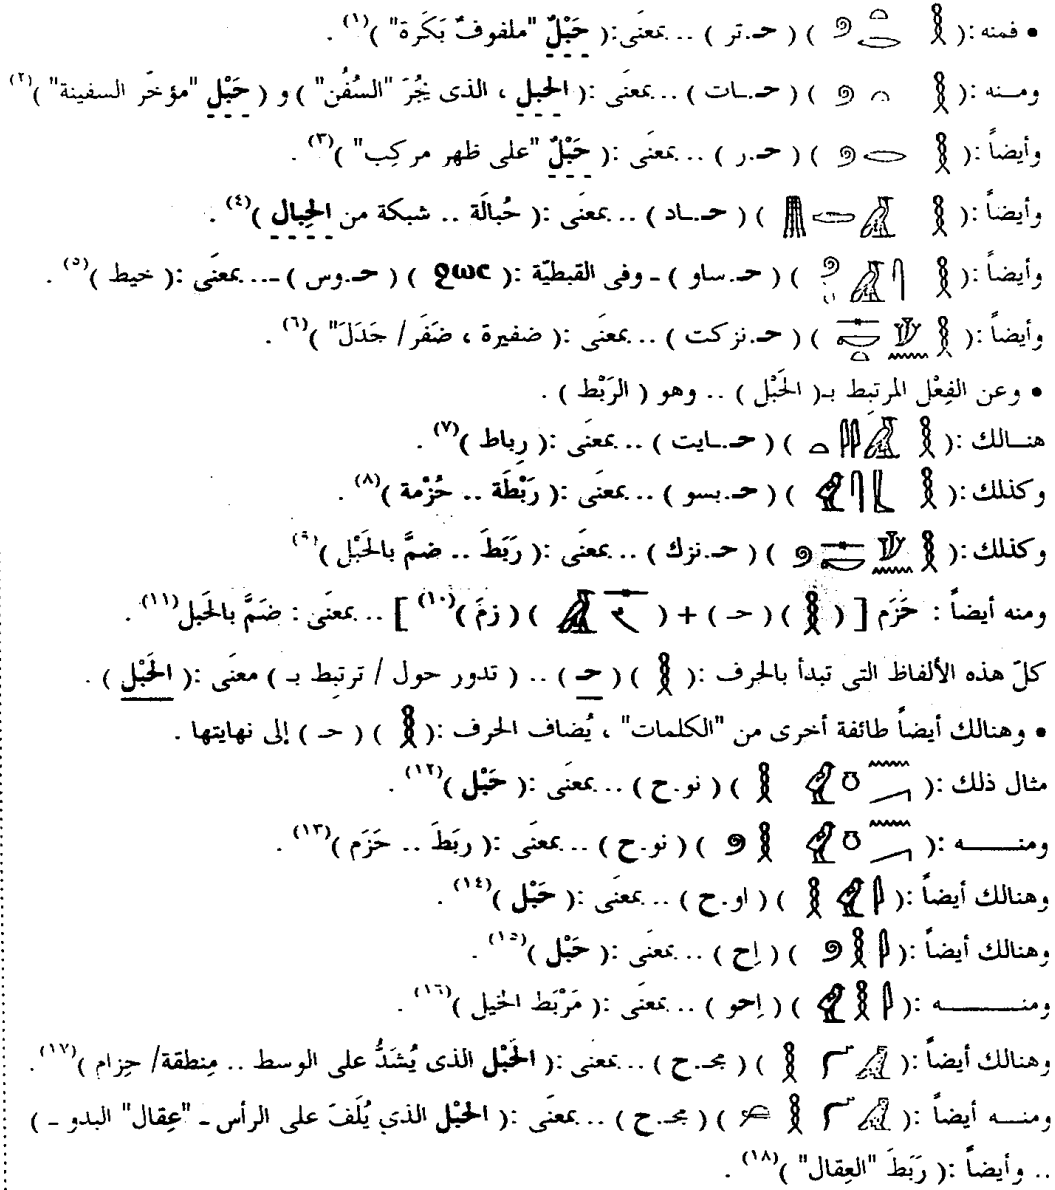 • فمنه :( 𓎛 𓏏 𓂋 𓍢 ) ( حـ.تر ) ... بمعنَى:( حَبْلٌ "ملفوفٌ بَكَرة" )(١) .
ومـنه :( 𓎛 𓏏 𓍢 ) ( حـ.ـات ) ... بمعنَى :( الحبل ، الذى يَجُرّ "السُفُن" ) و ( حَبْل "مؤخّر السفينة" )(٢)
وأيضاً :( 𓎛 𓂋 𓍢 ) ( حـ.ر ) ... بمعنَى :( حَبْلٌ "على ظهر مركِب" )(٣) .
وأيضاً :( 𓎛 ) ( حـ.ـاد ) ... بمعنَى :( حُبالَة .. شبكة من الحِبال )(٤) .
وأيضاً :( 𓎛 ) ( حـ.ساو ) ـ وفى القبطيّة :( ϩωc ) ( حـ.وس ) ـ... بمعنَى :( خيط )(٥) .
وأيضاً :( 𓎛 ) ( حـ.نزكت ) ... بمعنَى :( ضفيرة ، ضَفَر/ جَدَلَ" )(٦) .
• وعن الفِعْل المرتبط بـ( الحَبْل ) .. وهو ( الرَبْط ) .
هنــالك :( 𓎛 𓄿 𓇌 𓏏 ) ( حـ.ـايت ) ... بمعنَى :( رِباط )(٧) .
وكذلك :( 𓎛 𓃀 𓋴 𓅱 ) ( حـ.بسو ) ... بمعنَى :( رَبْطَة .. حُزْمة )(٨) .
وكذلك :( 𓎛 ) ( حـ.نزك ) ... بمعنَى :( رَبَطَ .. ضمَّ بالحَبْل )(٩)
ومنه أيضاً : حَزَم [ ( 𓎛 ) ( حـ ) + ( ) ( زمَ )(١٠) ] ... بمعنَى : ضَمَّ بالحَبل(١١) .
كلّ هذه الألفاظ التى تبدأ بالحرف :( 𓎛 ) ( حـ ) .. ( تدور حول / ترتبط بـ ) معنَى :( الحَبْل ) .
• وهنالك أيضاً طائفة أخرى من "الكلمات" ، يُضاف الحرف :( 𓎛 ) ( حـ ) إلى نهايتها .
مثال ذلك :( 𓈖 𓂝 𓏌 𓅱 𓎛 ) ( نو.ح ) ... بمعنَى :( حَبْل )(١٢) .
ومنـــــه :( 𓈖 𓂝 𓏌 𓅱 𓎛 𓍢 ) ( نو.ح ) ... بمعنَى :( ربَطَ .. حَزَم )(١٣) .
وهنالك أيضاً :( 𓇋 𓅱 𓎛 ) ( او.ح ) ... بمعنَى :( حَبْل )(١٤) .
وهنالك أيضاً :( 𓇋 𓎛 𓍢 ) ( اِح ) ... بمعنَى :( حَبْل )(١٥) .
ومنـــــــه :( 𓇋 𓎛 𓅱 ) ( اِحو ) ... بمعنَى :( مَرْبَط الخيل )(١٦) .
وهنالك أيضاً :( 𓅓 𓎛 ) ( مجـ.ح ) ... بمعنَى :( الحَبْل الذى يُشَدُّ على الوسط .. مِنطقة/ حِزام )(١٧) .
ومنــه أيضاً :( 𓅓 𓎛 ) ( مجـ.ح ) ... بمعنَى :( الحَبْل الذي يُلَفّ على الرأس ـ "عِقال" البدو ـ )
.. وأيضاً :( رَبَطَ "العِقال" )(١٨) .